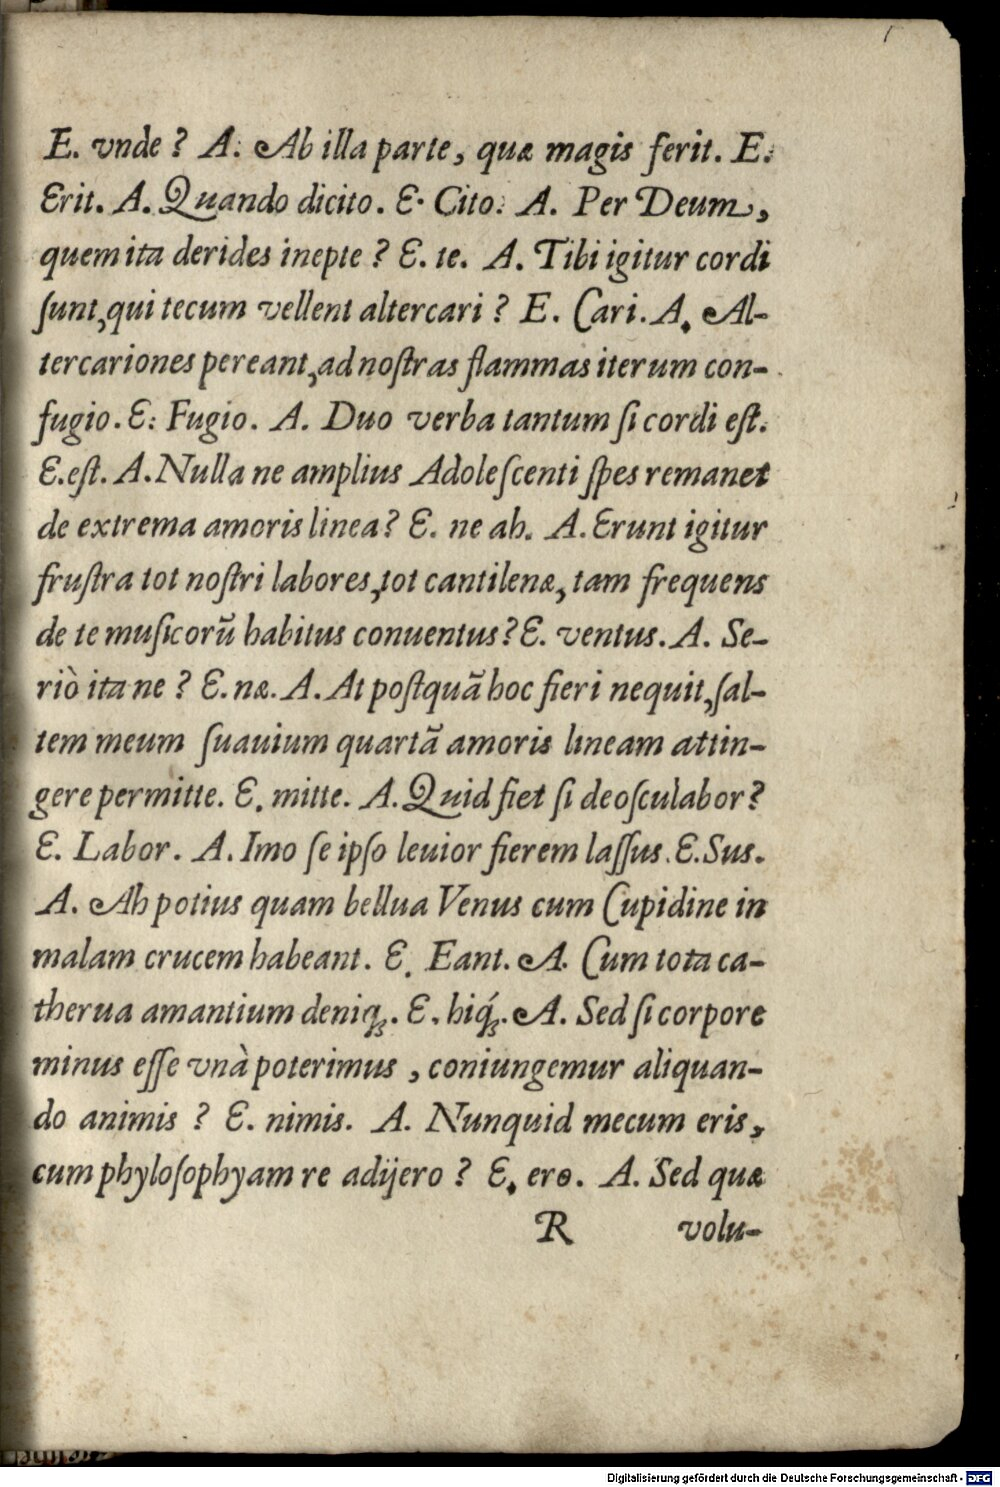 E. vnde ? A. Ab illa parte, quæ magis ferit. E.
Erit. A. Quando dicito. E. Cito. A. Per Deum,
quem ita derides inepte ? E. te. A. Tibi igitur cordi
ſunt, qui tecum vellent altercari ? E. Cari. A. Al-
tercariones pereant, ad noſtras flammas iterum con-
fugio. E: Fugio. A. Duo verba tantum ſi cordi eſt.
E. eſt. A. Nulla ne amplius Adoleſcenti ſpes remanet
de extrema amoris linea? E. ne ah. A. Erunt igitur
fruſtra tot noſtri labores, tot cantilenæ, tam frequens
de te muſicorũ habitus conuentus? E. ventus. A. Se-
riò ita ne ? E. næ. A. At poſtquã hoc fieri nequit, ſal-
tem meum ſuauium quartã amoris lineam attin-
gere permitte. E. mitte. A. Quid fiet ſi deoſculabor?
E. Labor. A. Imo ſe ipſo leuior fierem laſſus. E. Sus.
A. Ah potius quam bellua Venus cum Cupidine in
malam crucem habeant. E. Eant. A. Cum tota ca-
therua amantium deniq;. E. hiq́;. A. Sed ſi corpore
minus eſſe vnà poterimus , coniungemur aliquan-
do animis ? E. nimis. A. Nunquid mecum eris,
cum phyloſophyam re adijero ? E. ero. A. Sed quæ
R volu-
Digitalisierung gefördert durch die Deutsche Forschungsgemeinschaft - DFG